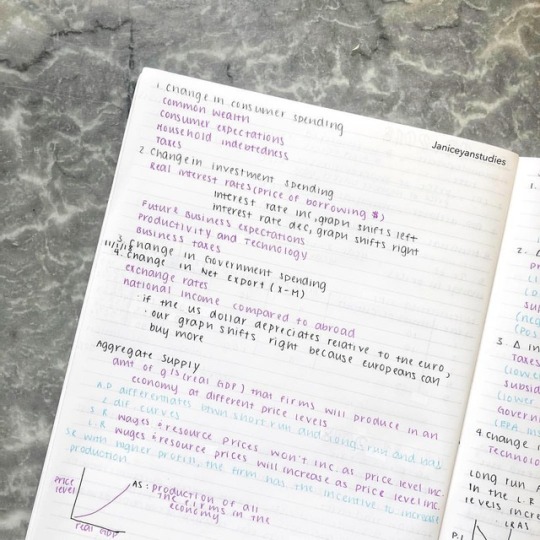 1. Change in consumer spending
common wealth
consumer expectations
Household indebtedness
Taxes
2. Change in investment spending
Real interest rates (Price of borrowing $)
interest rate inc, graph shifts left
interest rate dec, graph shifts right
Future Business expectations
Productivity and Technology
Business taxes
3. Change in Government spending
4. Change in Net Export (X-M)
exchange rates
national income compared to abroad
· if the us dollar depreciates relative to the euro,
· our graph shifts right because europeans can
buy more
Aggregate Supply
amt of q's (real GDP) that firms will produce in an
economy at different price levels
A.P differentiates btwn short run and long run and has
2 dif curves
S.R wages & resource prices won't inc. as price level inc.
L.R wages & resource prices will increase as price level inc.
SR with higher profit, the firm has the incentive to increase
production
Price
level
AS: production of all
the firms in the
economy
real GDP
Janiceyanstudies
1.
2. Δ
3. Δ in
Taxes
(lower
Subsid
(lower
Govern
4. change i
Technolo
Long run A
In the L.R
levels incre
LRAS
P.L